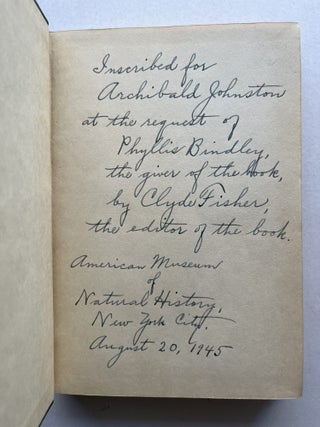 Inscribed for
Archibald Johnston
at the request of
Phyllis Bindley,
the giver of the book,
by Clyde Fisher,
the editor of the book.
American Museum
of
Natural History,
New York City.
August 20, 1945